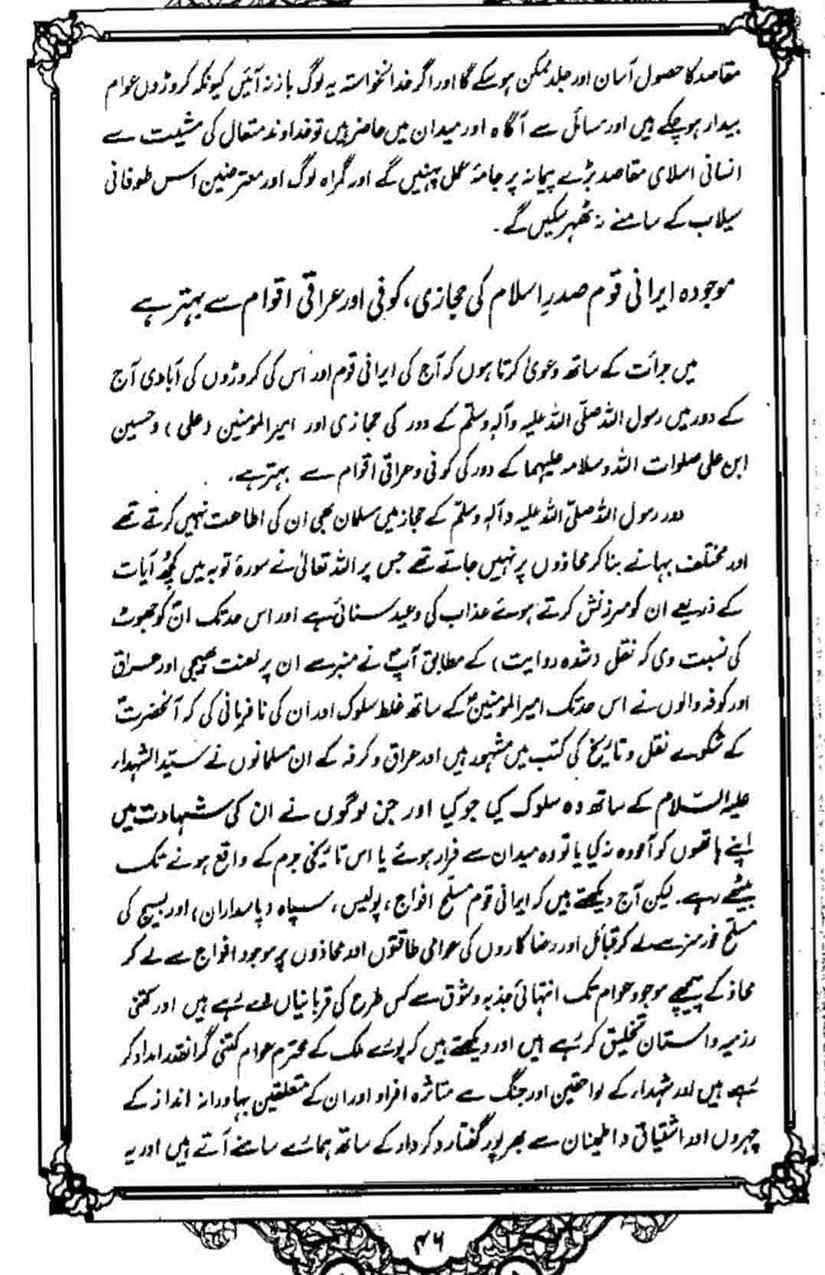 مقاصد کا حصول آسان اور جلد ممکن ہو سکے گا اور اگر خدانخواستہ یہ لوگ باز نہ آئیں کیونکہ کروڑوں عوام
بیدار ہو چکے ہیں اور مسائل سے آگاہ اور میدان میں حاضر ہیں تو خداوند متعال کی مشیت سے
انسانی اسلامی مقاصد بڑے پیمانہ پر جامۂ عمل پہنیں گے اور گمراہ لوگ اور معترضین اس طوفانی
سیلاب کے سامنے نہ ٹھہر سکیں گے۔
موجودہ ایرانی قوم صدرِ اسلام کی حجازی، کوفی اور عراقی اقوام سے بہتر ہے
میں جرأت کے ساتھ دعویٰ کرتا ہوں کہ آج کی ایرانی قوم اور اس کی کروڑوں کی آبادی آج
کے دور میں رسول اللہ صلّی اللہ علیہ وآلہ وسلّم کے دور کی حجازی اور امیرالمومنین (علی) وحسین
ابن علی صلوات اللہ وسلامہ علیہما کے دور کی کوفی وعراقی اقوام سے بہتر ہے۔
دور رسول اللہ صلّی اللہ علیہ وآلہ وسلّم کے حجاز میں مسلمان بھی ان کی اطاعت نہیں کرتے تھے
اور مختلف بہانے بنا کر محاذوں پر نہیں جاتے تھے جس پر اللہ تعالیٰ نے سورۂ توبہ میں کچھ آیات
کے ذریعے ان کو سرزنش کرتے ہوئے عذاب کی وعید سنائی ہے اور اس حد تک انؐ کو جھوٹ
کی نسبت دی کہ نقل (شدہ روایت) کے مطابق آپؐ نے منبر سے ان پر لعنت بھیجی اور عراق
اور کوفہ والوں نے اس حد تک امیرالمومنینؑ کے ساتھ غلط سلوک اور ان کی نافرمانی کی کہ آنحضرتؑ
کے شکوے نقل و تاریخ کی کتب میں مشہور ہیں اور عراق و کوفہ کے ان مسلمانوں نے سیّد الشہداء
علیہ السّلام کے ساتھ وہ سلوک کیا جو کیا اور جن لوگوں نے ان کی شہادت میں
اپنے ہاتھوں کو آلودہ نہ کیا یا تو وہ میدان سے فرار ہوئے یا اس تاریخی جرم کے واقع ہونے تک
بیٹھے رہے۔ لیکن آج دیکھتے ہیں کہ ایرانی قوم مسلح افواج، پولیس، سپاہ (پاسداران) اور بسیج کی
مسلح فورسز سے لے کر قبائل اور رضا کاروں کی عوامی طاقتوں اور محاذوں پر موجود افواج سے لے کر
محاذ کے پیچھے موجود عوام تک انتہائی جذبہ و شوق سے کس طرح کی قربانیاں دے رہے ہیں اور کتنی
رزمیہ داستان تخلیق کر رہے ہیں اور دیکھتے ہیں کہ پورے ملک کے محترم عوام کتنی گرانقدر امداد کر
رہے ہیں اور شہداء کے لواحقین اور جنگ سے متاثرہ افراد اور ان کے متعلقین بہادرانہ انداز کے
چہروں اور اشتیاق و اطمینان سے بھر پور گفتار و کردار کے ساتھ ہمارے سامنے آتے ہیں اور یہ
۴۶